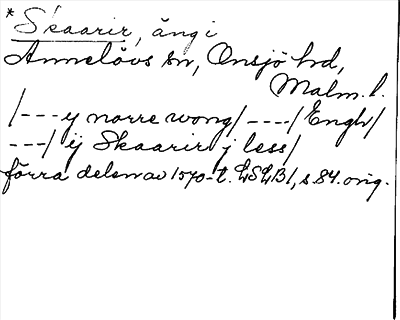 *Skaarir, äng i
Annelövs sn, Onsjö hd,
Malm. l.
/---y norre wong/----/Engh/
---/ ij Skaarir j less/
förra delen av 1570-t. LSLB1, s 84. orig.